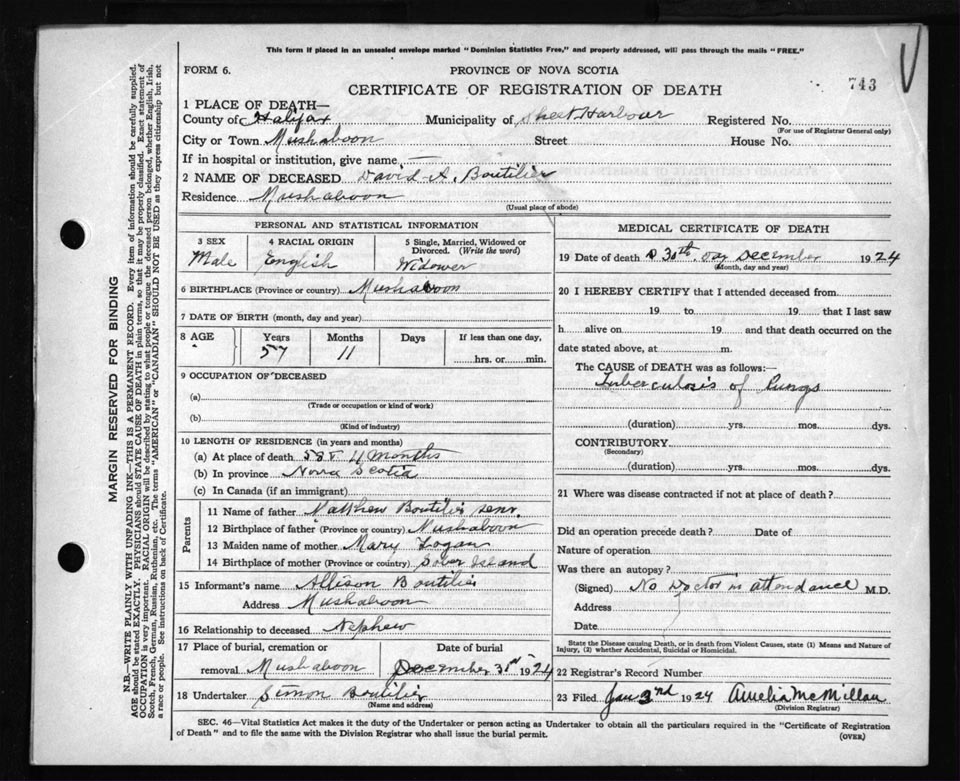 This form if placed in an unsealed envelope marked "Dominion Statistics Free," and properly addressed, will pass through the mails "FREE."
FORM 6.
PROVINCE OF NOVA SCOTIA
743
CERTIFICATE OF REGISTRATION OF DEATH
1 PLACE OF DEATH—
County of Halifax Municipality of Sheet Harbour Registered No.
(For use of Registrar General only)
City or Town Mushaboon Street House No.
If in hospital or institution, give name —
2 NAME OF DECEASED David A. Boutilier
Residence Mushaboon
(Usual place of abode)
PERSONAL AND STATISTICAL INFORMATION
3 SEX 4 RACIAL ORIGIN 5 Single, Married, Widowed or Divorced. (Write the word)
Male English Widower
6 BIRTHPLACE (Province or country) Mushaboon
7 DATE OF BIRTH (month, day and year)
8 AGE Years Months Days If less than one day,
57 11 hrs. or min.
9 OCCUPATION OF DECEASED
(a)
(Trade or occupation or kind of work)
(b)
(Kind of industry)
10 LENGTH OF RESIDENCE (in years and months)
(a) At place of death 4 Months
(b) In province Nova Scotia
(c) In Canada (if an immigrant)
Parents
11 Name of father Matthew Boutilier senr.
12 Birthplace of father (Province or country) Mushaboon
13 Maiden name of mother Mary Logan
14 Birthplace of mother (Province or country) Sober Island
15 Informant's name Allison Boutilier
Address Mushaboon
16 Relationship to deceased Nephew
17 Place of burial, cremation or Date of burial
removal Mushaboon December 31st 1924
18 Undertaker Simon Boutilier
(Name and address)
MEDICAL CERTIFICATE OF DEATH
19 Date of death 30th day December 1924
(Month, day and year)
20 I HEREBY CERTIFY that I attended deceased from
19 to 19 that I last saw
h alive on 19 and that death occurred on the
date stated above, at m.
The CAUSE of DEATH was as follows:—
Tuberculosis of lungs
(duration) yrs. mos. dys.
CONTRIBUTORY
(Secondary)
(duration) yrs. mos. dys.
21 Where was disease contracted if not at place of death?
Did an operation precede death? Date of
Nature of operation
Was there an autopsy?
(Signed) No Doctor in attendance M.D.
Address
Date
State the Disease causing Death, or in death from Violent Causes, state (1) Means and Nature of
Injury, (2) whether Accidental, Suicidal or Homicidal.
22 Registrar's Record Number
23 Filed Jan 3rd 1924 Amelia McMillan
(Division Registrar)
SEC. 46—Vital Statistics Act makes it the duty of the Undertaker or person acting as Undertaker to obtain all the particulars required in the "Certificate of Registration
of Death" and to file the same with the Division Registrar who shall issue the burial permit.
(OVER)
MARGIN RESERVED FOR BINDING
N.B.—WRITE PLAINLY WITH UNFADING INK—THIS IS A PERMANENT RECORD. Every item of information should be carefully supplied.
AGE should be stated EXACTLY. PHYSICIANS should STATE CAUSE OF DEATH in plain terms, so that it may be properly classified. Exact statement of
OCCUPATION is very important. RACIAL ORIGIN will be described by stating to what people or tongue the deceased person belonged, whether English, Irish,
Scotch, French, German, Russian, Ruthenian, etc. The terms "AMERICAN" or "CANADIAN" SHOULD NOT BE USED as they express citizenship but not
a race or people. See instructions on back of Certificate.